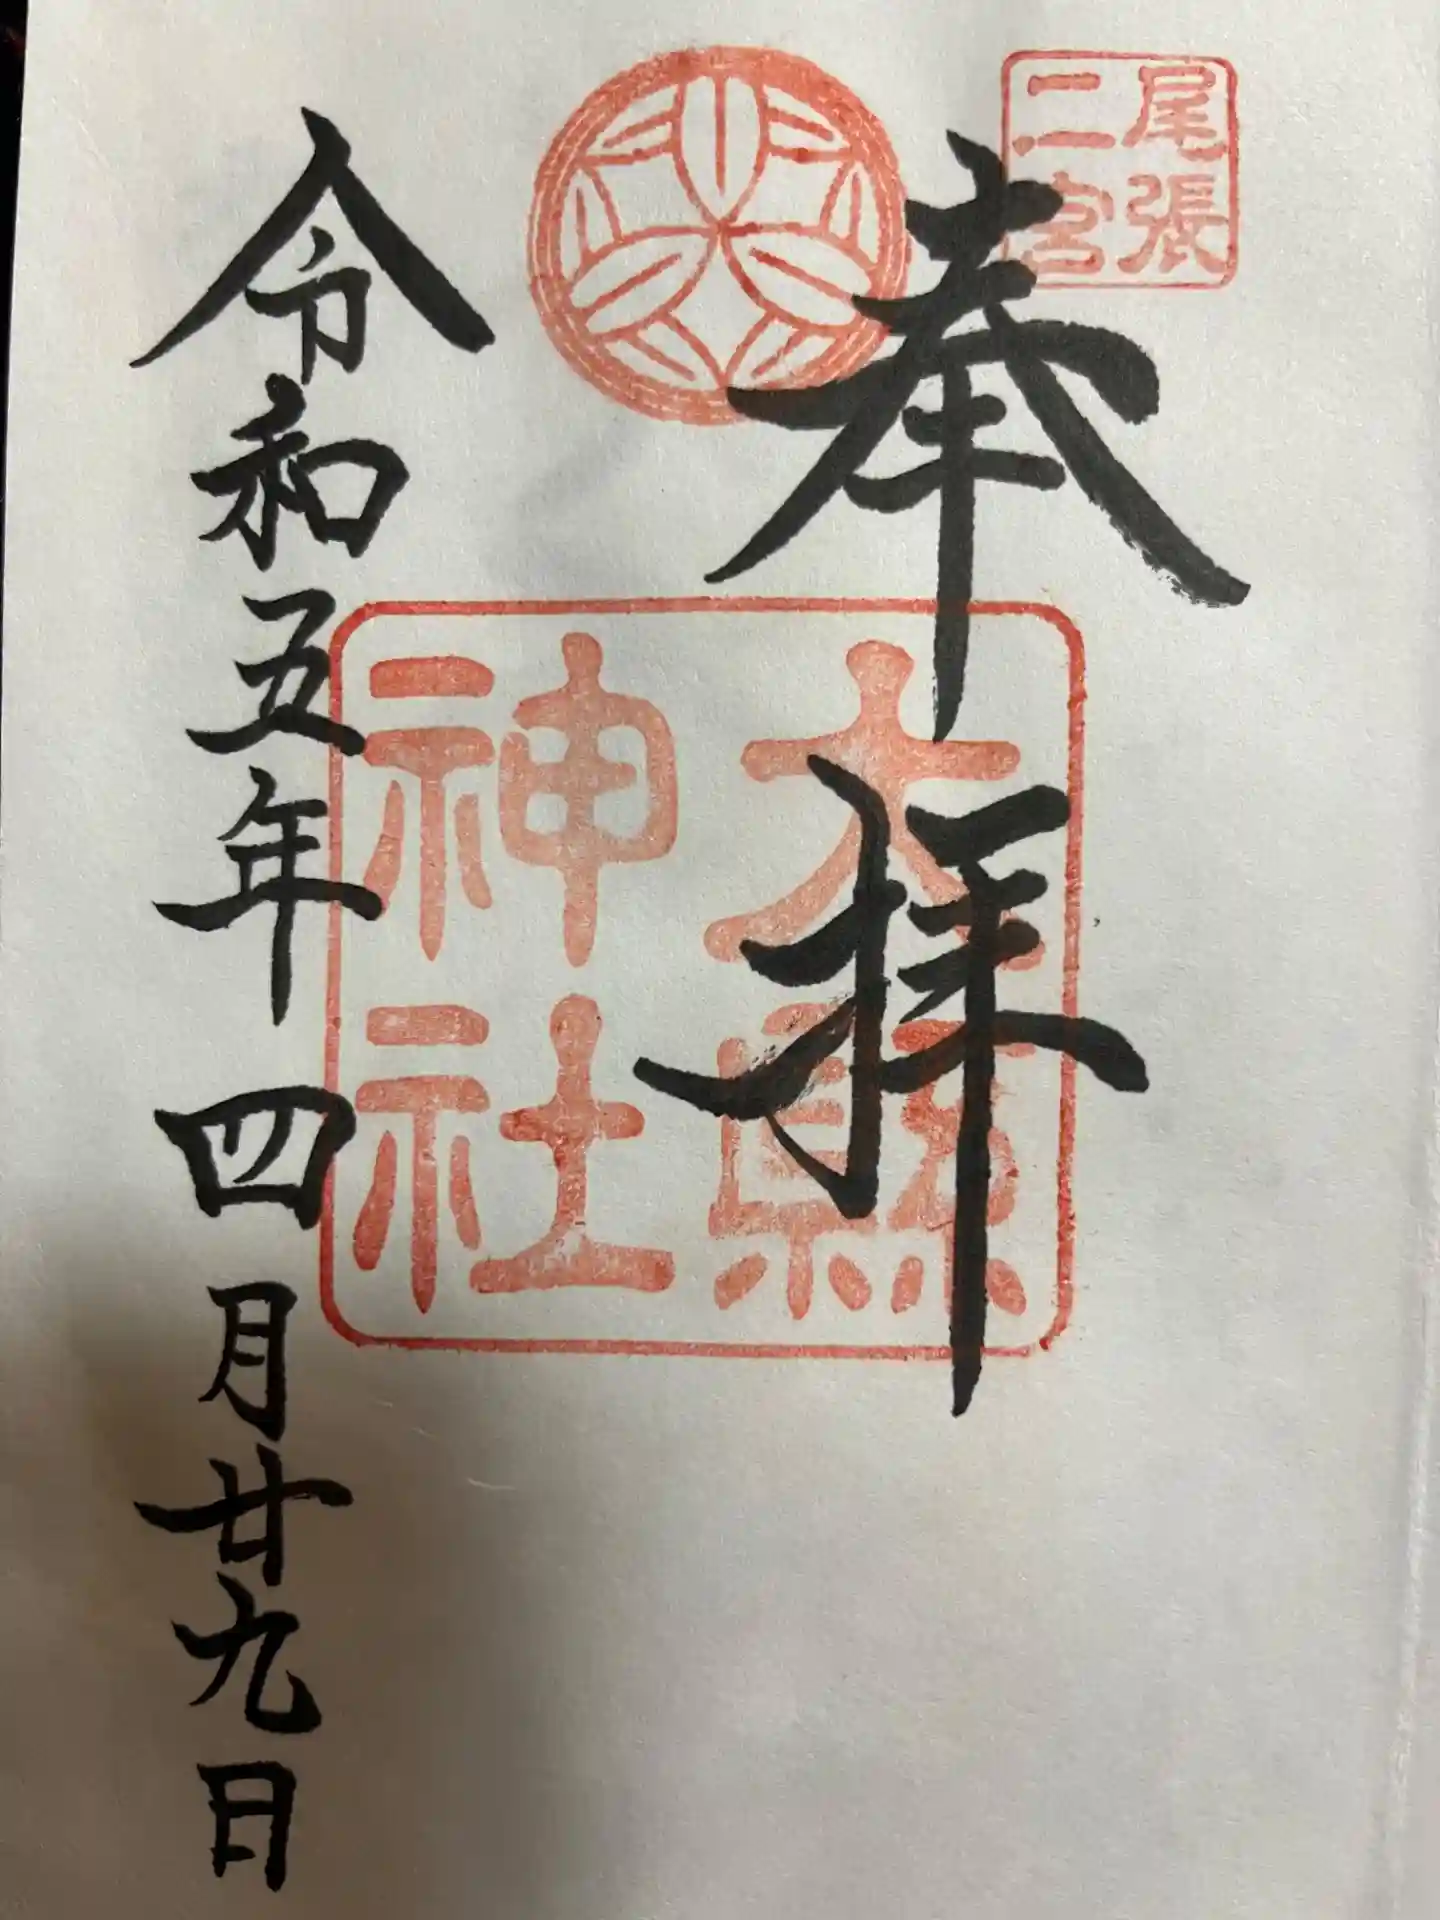 尾張
二宮
奉拝
大縣
神社
令和五年四月廿九日